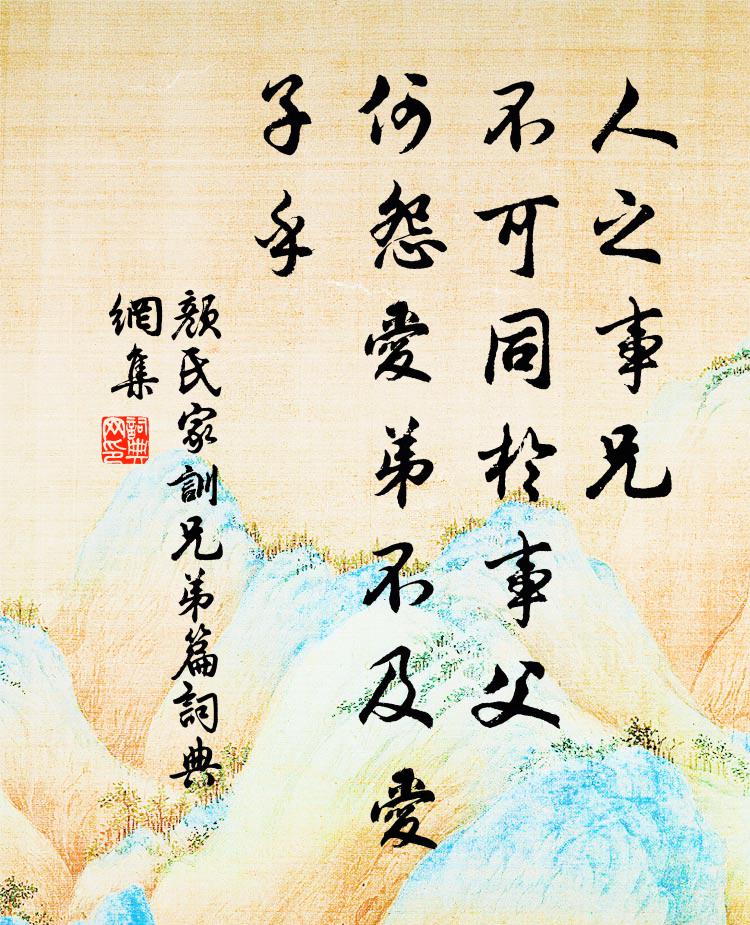 人之事兄
不可同於事父
何怨愛弟不及愛
子乎
顏氏家訓兄弟篇詞典
網集
詞典
网印